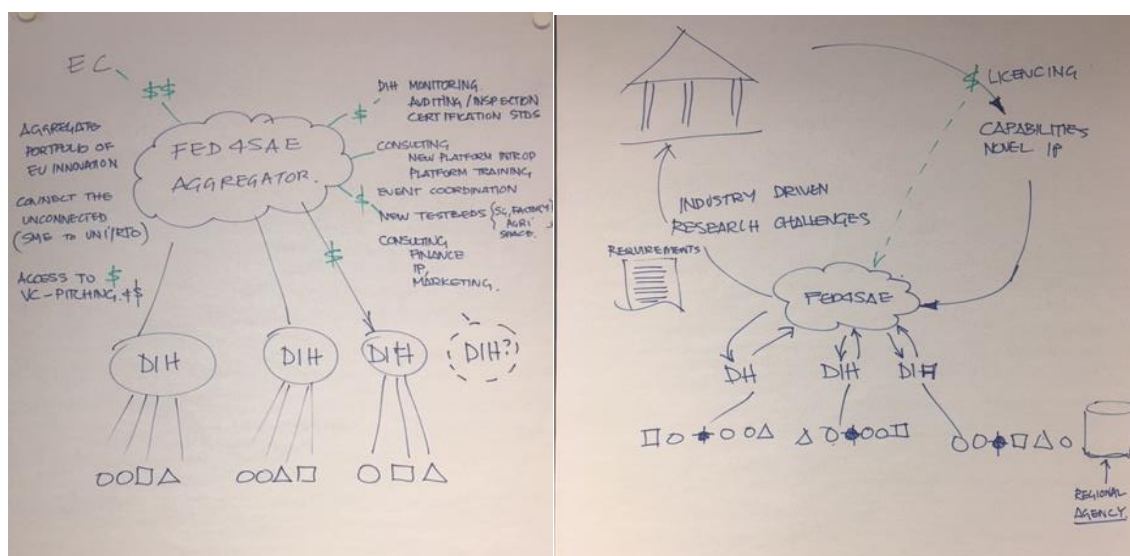 EC
$$
AGGREGATE
PORTFOLIO OF
EU INNOVATION
CONNECT THE
UNCONNECTED
(SME TO UNI/RTO)
ACCESS TO $
VC-PITCHING. $
FED4SAE
AGGREGATOR.
$
DIH MONITORING
AUDITING/INSPECTION
CERTIFICATION STDS
CONSULTING
NEW PLATFORM INTROD
PLATFORM TRAINING
EVENT COORDINATION
$
NEW TESTBEDS {5G, FACTORY}
AGRI
SPACE.
CONSULTING
FINANCE
IP,
MARKETING.
$
DIH
DIH
DIH
DIH?
$ LICENCING
CAPABILITIES
NOVEL IP
INDUSTRY DRIVEN
RESEARCH CHALLENGES
REQUIREMENTS
FED4SAE
DH
DIH
DIH
REGIONAL
AGENCY.